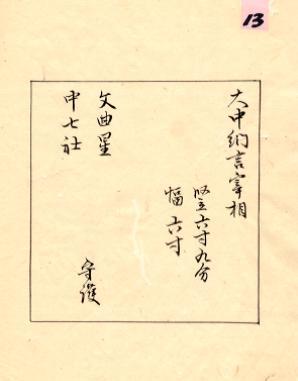 13
大中納言宰相
竪六寸九分
幅六寸
文曲星
中七社
守護